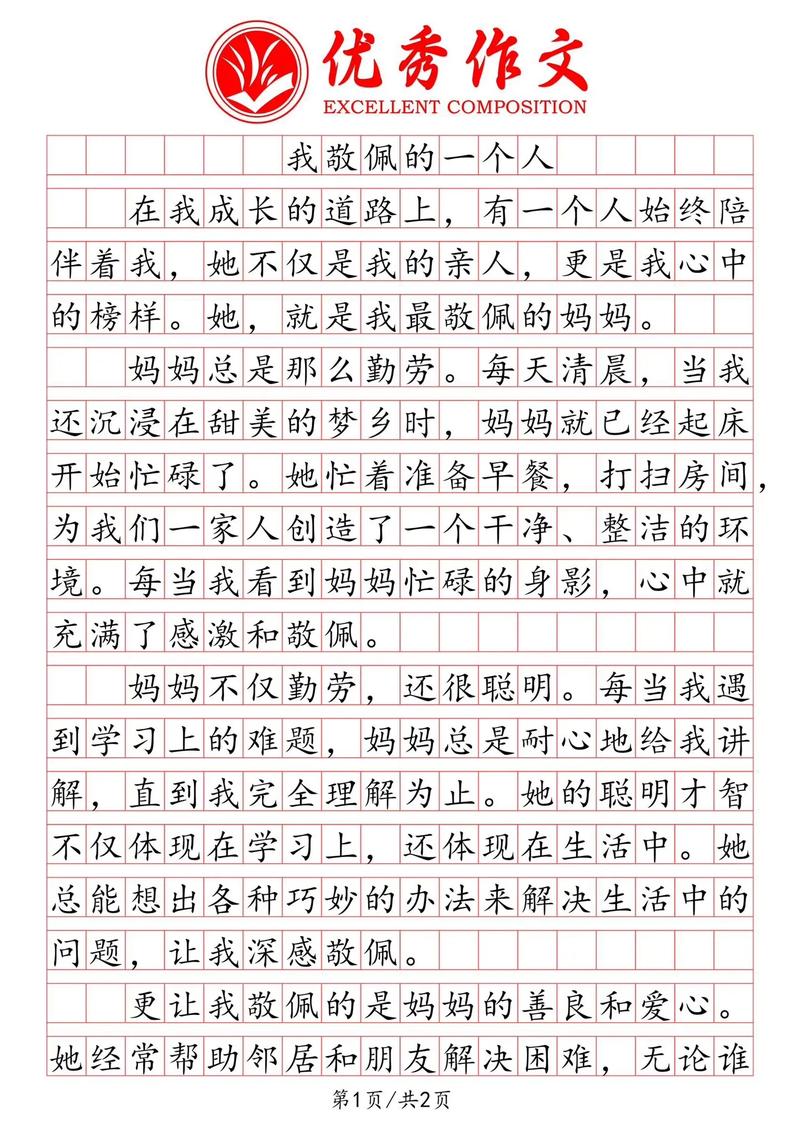 优秀作文
EXCELLENT COMPOSITION
我敬佩的一个人
在我成长的道路上，有一个人始终陪
伴着我，她不仅是我的亲人，更是我心中
的榜样。她，就是我最敬佩的妈妈。
妈妈总是那么勤劳。每天清晨，当我
还沉浸在甜美的梦乡时，妈妈就已经起床
开始忙碌了。她忙着准备早餐，打扫房间，
为我们一家人创造了一个干净、整洁的环
境。每当我看到妈妈忙碌的身影，心中就
充满了感激和敬佩。
妈妈不仅勤劳，还很聪明。每当我遇
到学习上的难题，妈妈总是耐心地给我讲
解，直到我完全理解为止。她的聪明才智
不仅体现在学习上，还体现在生活中。她
总能想出各种巧妙的办法来解决生活中的
问题，让我深感敬佩。
更让我敬佩的是妈妈的善良和爱心。
她经常帮助邻居和朋友解决困难，无论谁
第1页/共2页